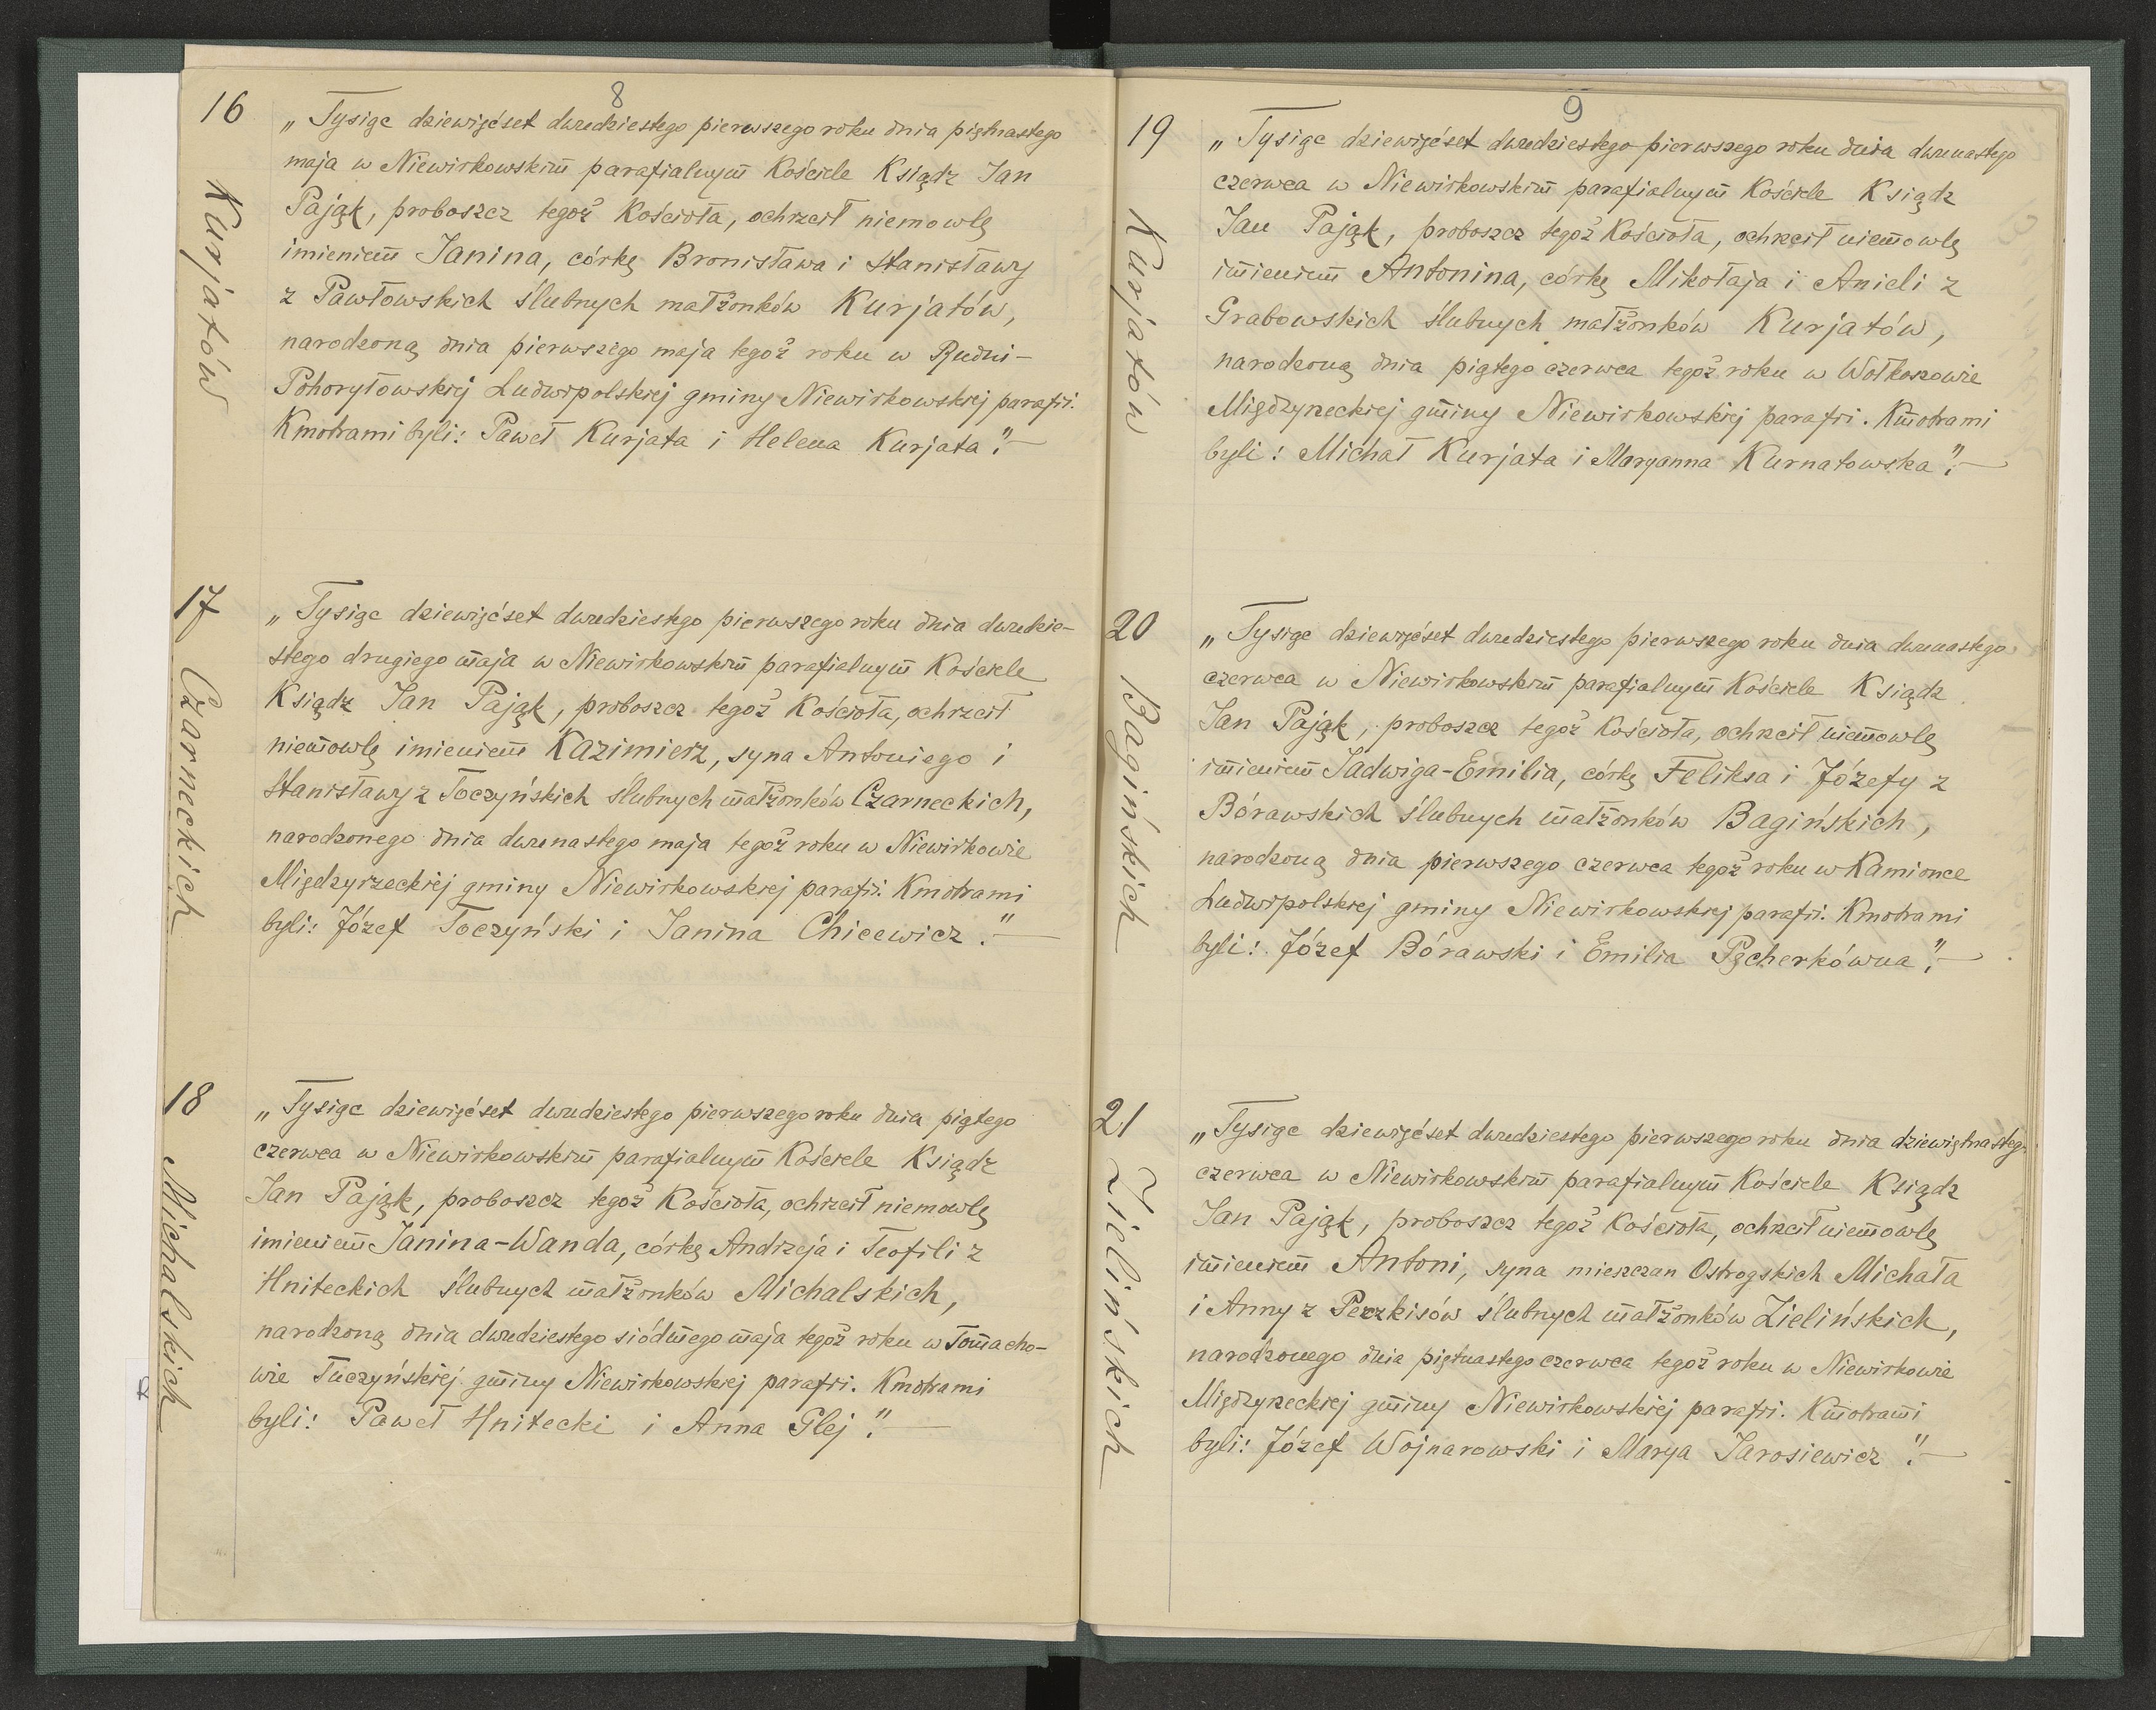 8
16
Kurjatów
„Tysiąc dziewięćset dwudziestego pierwszego roku dnia piętnastego
maja w Niewirkowskim parafialnym Kościele Ksiądz Jan
Pająk, proboszcz tegoż Kościoła, ochrzcił niemowlę
imieniem Janina, córkę Bronisława i Stanisławy
z Pawłowskich ślubnych małżonków Kurjatów,
narodzoną dnia pierwszego maja tegoż roku w Rudni-
Pohoryłowskiej Ludwipolskiej gminy Niewirkowskiej parafii.
Kmotrami byli: Paweł Kurjata i Helena Kurjata”.—
17
Czarneckich
„Tysiąc dziewięćset dwudziestego pierwszego roku dnia dwudzie-
stego drugiego maja w Niewirkowskim parafialnym Kościele
Ksiądz Jan Pająk, proboszcz tegoż Kościoła, ochrzcił
niemowlę imieniem Kazimierz, syna Antoniego i
Stanisławy z Toczyńskich ślubnych małżonków Czarneckich,
narodzonego dnia dwunastego maja tegoż roku w Niewirkowie
Międzyrzeckiej gminy Niewirkowskiej parafii. Kmotrami
byli: Józef Toczyński i Janina Chicewicz”.—
18
Michalskich
„Tysiąc dziewięćset dwudziestego pierwszego roku dnia piątego
czerwca w Niewirkowskim parafialnym Kościele Ksiądz
Jan Pająk, proboszcz tegoż Kościoła, ochrzcił niemowlę
imieniem Janina-Wanda, córkę Andrzeja i Teofili z
Hniteckich ślubnych małżonków Michalskich,
narodzoną dnia dwudziestego siódmego maja tegoż roku w Tomacho-
wie Tuczyńskiej gminy Niewirkowskiej parafii. Kmotrami
byli: Paweł Hnitecki i Anna Glej”.—
9
19
Kurjatów
„Tysiąc dziewięćset dwudziestego pierwszego roku dnia dwunastego
czerwca w Niewirkowskim parafialnym Kościele Ksiądz
Jan Pająk, proboszcz tegoż Kościoła, ochrzcił niemowlę
imieniem Antonina, córkę Mikołaja i Anieli z
Grabowskich ślubnych małżonków Kurjatów,
narodzoną dnia piątego czerwca tegoż roku w Wołkoszowie
Międzyrzeckiej gminy Niewirkowskiej parafii. Kmotrami
byli: Michał Kurjata i Maryanna Kurnatowska”.—
20
Bagińskich
„Tysiąc dziewięćset dwudziestego pierwszego roku dnia dwunastego
czerwca w Niewirkowskim parafialnym Kościele Ksiądz
Jan Pająk, proboszcz tegoż Kościoła, ochrzcił niemowlę
imieniem Jadwiga-Emilia, córkę Feliksa i Józefy z
Bórawskich ślubnych małżonków Bagińskich,
narodzoną dnia pierwszego czerwca tegoż roku w Kamionce
Ludwipolskiej gminy Niewirkowskiej parafii. Kmotrami
byli: Józef Bórawski i Emilia Pęcherkówna”.—
21
Zielińskich
„Tysiąc dziewięćset dwudziestego pierwszego roku dnia dziewiętnastego
czerwca w Niewirkowskim parafialnym Kościele Ksiądz
Jan Pająk, proboszcz tegoż Kościoła, ochrzcił niemowlę
imieniem Antoni, syna mieszczan Ostrogskich Michała
i Anny z Peczkisów ślubnych małżonków Zielińskich,
narodzonego dnia piętnastego czerwca tegoż roku w Niewirkowie
Międzyrzeckiej gminy Niewirkowskiej parafii. Kmotrami
byli: Józef Wojnarowski i Marya Jarosiewicz”.—